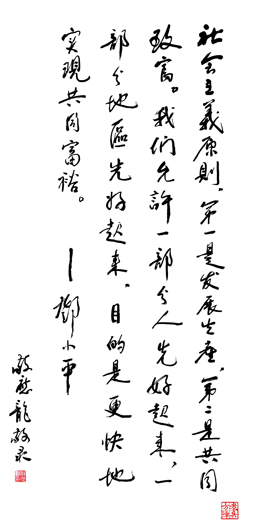 社会主義原則，第一是发展生產，第二是共同
致富。我们允許一部分人先好起来，一
部分地區先好起来，目的是更快地
实現共同富裕。
—鄧小平
龍敬录